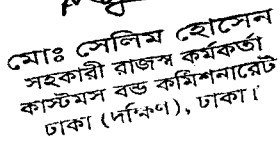 মোঃ সেলিম হোসেন
সহকারী রাজস্ব কর্মকর্তা
কাস্টমস বন্ড কমিশনারেট
ঢাকা (দক্ষিণ), ঢাকা।